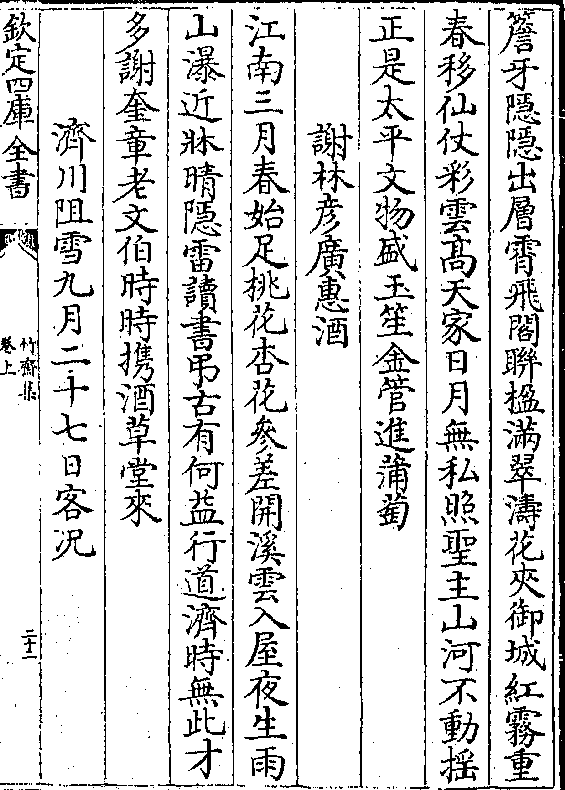 簷牙隠隠出層霄飛閣聯楹滿翠濤花夾御城紅霧重
春移仙仗彩雲髙天家日月無私照聖主山河不動揺
正是太平文物盛玉笙金管進蒲萄
謝林彦廣惠酒
江南三月春始足桃花杏花參差開溪雲入屋夜生雨
山瀑近牀晴隠雷讀書弔古有何益行道濟時無此才
多謝奎章老文伯時時携酒草堂來
濟川阻雪九月二十七日客况
欽定四庫全書
竹齋集
卷上
二十二